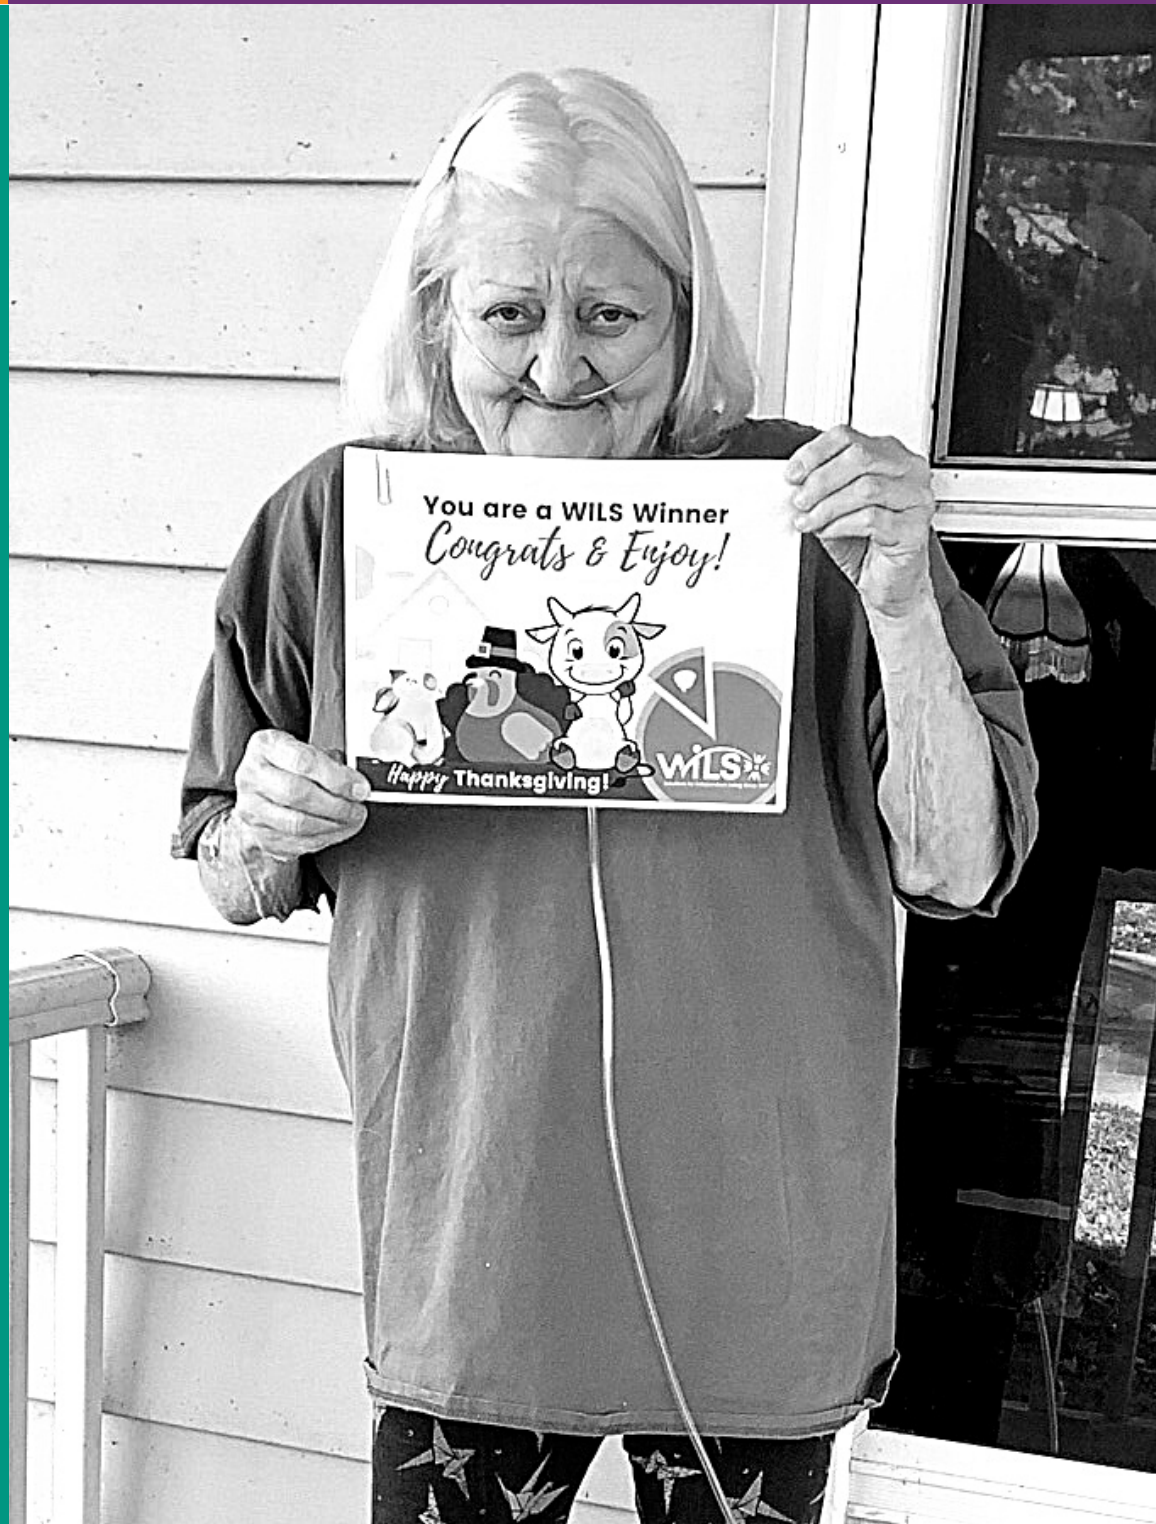 You are a WILS Winner
Congrats & Enjoy!
Happy Thanksgiving!
WILS